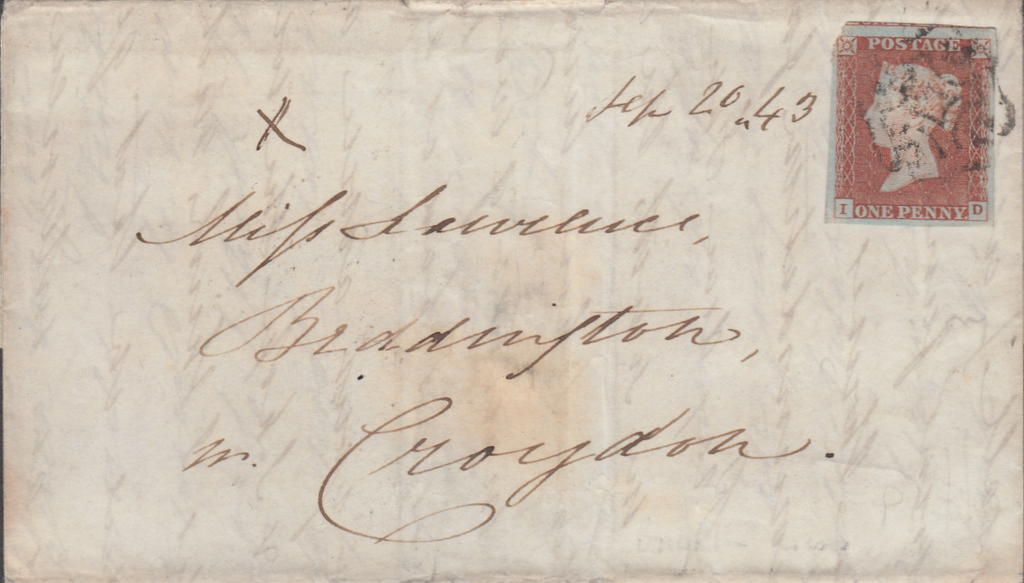 POSTAGE
I ONE PENNY D
Sep 20 43
X
Miss Lawrence,
Beddington,
nr. Croydon.